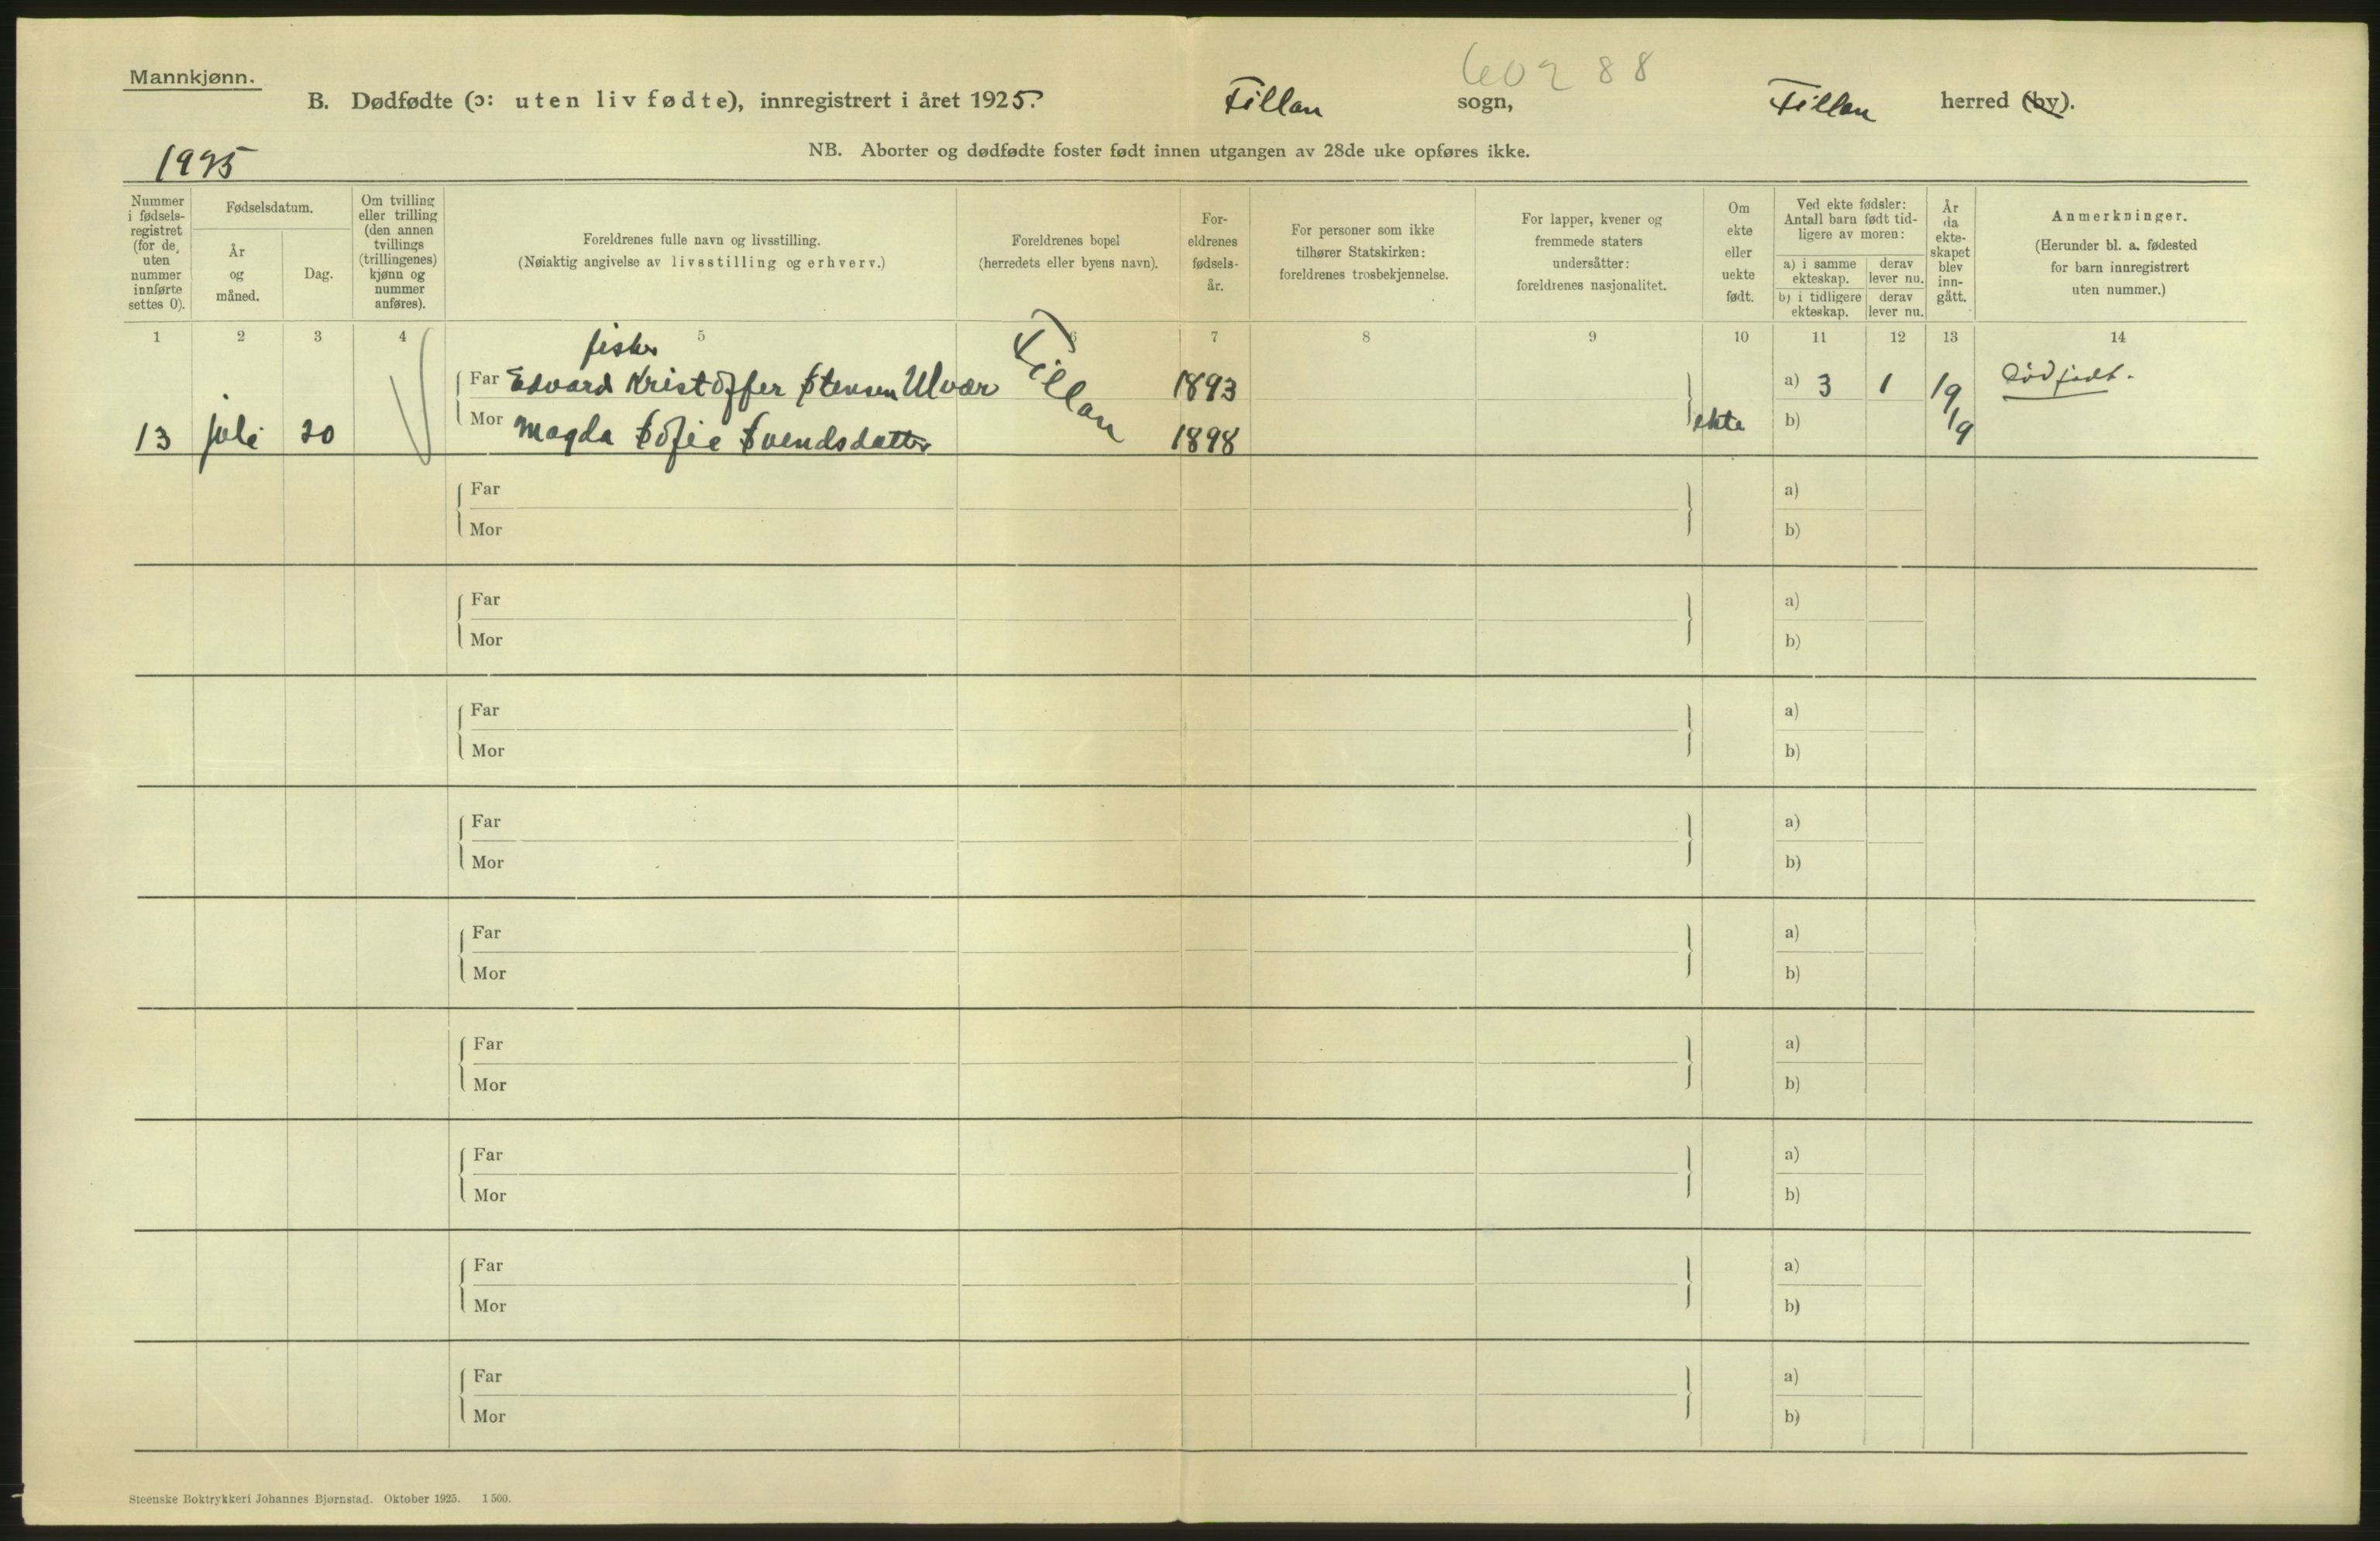 Mannkjønn.
60288
B. Dødfødte (ɔ: uten liv fødte), innregistrert i året 1925. Fillan sogn, Fillan herred (by).
NB. Aborter og dødfødte foster født innen utgangen av 28de uke opføres ikke.
1925
Nummer
i fødsels-
registret
(for de
uten
nummer
innførte
settes 0).
Fødselsdatum.
År
og
måned.
Dag.
Om tvilling
eller trilling
(den annen
tvillings
(trillingenes)
kjønn og
nummer
anføres).
Foreldrenes fulle navn og livsstilling.
(Nøiaktig angivelse av livsstilling og erhverv.)
Foreldrenes bopel
(herredets eller byens navn).
For-
eldrenes
fødsels-
år.
For personer som ikke
tilhører Statskirken:
foreldrenes trosbekjennelse.
For lapper, kvener og
fremmede staters
undersåtter:
foreldrenes nasjonalitet.
Om
ekte
eller
uekte
født.
Ved ekte fødsler:
Antall barn født tid-
ligere av moren:
a) i samme
ekteskap.
derav
lever nu.
b) i tidligere
ekteskap.
derav
lever nu.
År
da
ekte-
skapet
blev
inn-
gått.
Anmerkninger.
(Herunder bl. a. fødested
for barn innregistrert
uten nummer.)
1 2 3 4 5 6 7 8 9 10 11 12 13 14
fisker
Far Edvard Kristoffer Stensen Ulvær Fillan 1893 a) 3 1 19 Dødfødt.
13 juli 20 Mor Magda Sofie Svendsdatter 1898 ekte b) 19
Far a)
Mor b)
Far a)
Mor b)
Far a)
Mor b)
Far a)
Mor b)
Far a)
Mor b)
Far a)
Mor b)
Far a)
Mor b)
Far a)
Mor b)
Far a)
Mor b)
Steenske Boktrykkeri Johannes Bjørnstad. Oktober 1925. 1500.